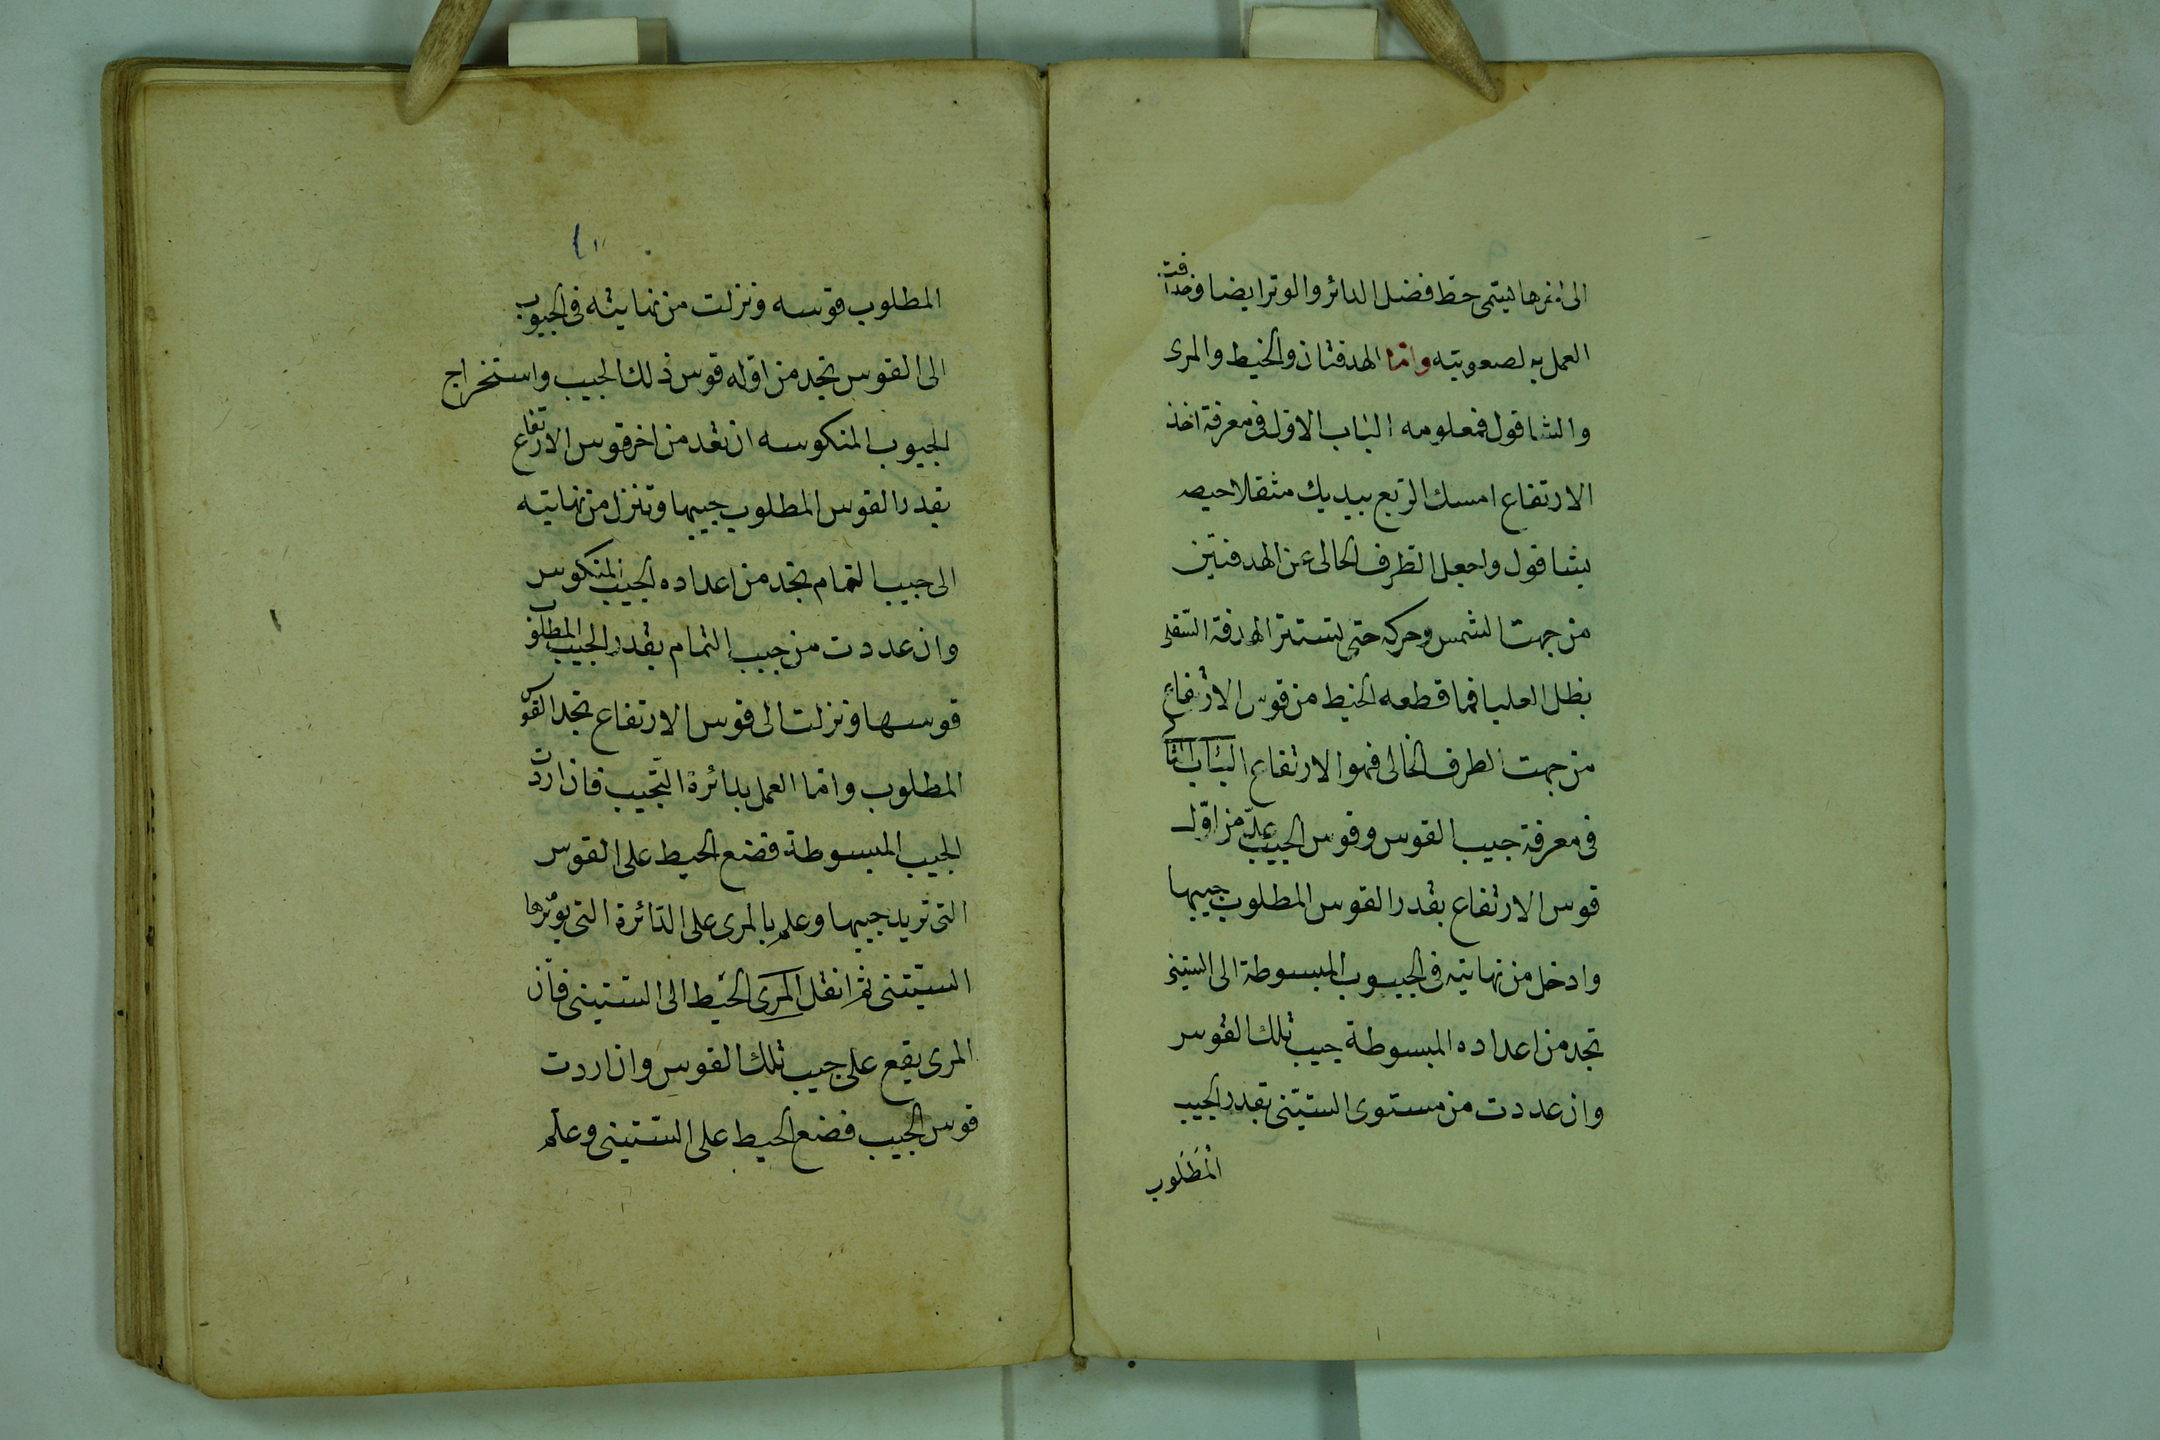 الى اخرها يسمى خط فضل الدائر والوتر ايضا وحذفت
العمل به لصعوبته واما الهدفتان والخيط والمرى
والشاقول فمعلومه الباب الاول فى معرفة اخذ
الارتفاع امسك الربع بيديك مثقلا خيصه
بشاقول واجعل الطرف الخالى عن الهدفتين
من جهت الشمس وحركه حتى تستتر الهدفة السفلى
بظل العليا فما قطعه الخيط من قوس الارتفاع
من جهت الطرف الخالى فهو الارتفاع الباب الثانى
فى معرفة جيب القوس وقوس الجيب عد من اول
قوس الارتفاع بقدر القوس المطلوب جيبها
وادخل من نهايته فى الجيوب المبسوطة الى الستينى
تجد من اعداده المبسوطة جيب تلك القوس
وان عددت من مستوى الستينى بقدر الجيب
المطلوب
المطلوب قوسه ونزلت من نهايته فى الجيوب
الى القوس تجد من اوله قوس ذلك الجيب واستخراج
الجيوب المنكوسه ان تعد من اخر قوس الارتفاع
بقدر القوس المطلوب جيبها وتنزل من نهايته
الى جيب التمام تجد من اعداده الجيب المنكوس
وان عددت من جيب التمام بقدر الجيب المطلوب
قوسها ونزلت الى قوس الارتفاع تجد القوس
المطلوب واما العمل بدائرة التجيب فان اردت
الجيب المبسوطة فضع الخيط على القوس
التى تريد جيبها وعلم بالمرى على الدائرة التى يوترها
الستينى ثم انقل المرى الخيط الى الستينى فان
المرى يقع على جيب تلك القوس وان اردت
قوس الجيب فضع الخيط على الستينى وعلم